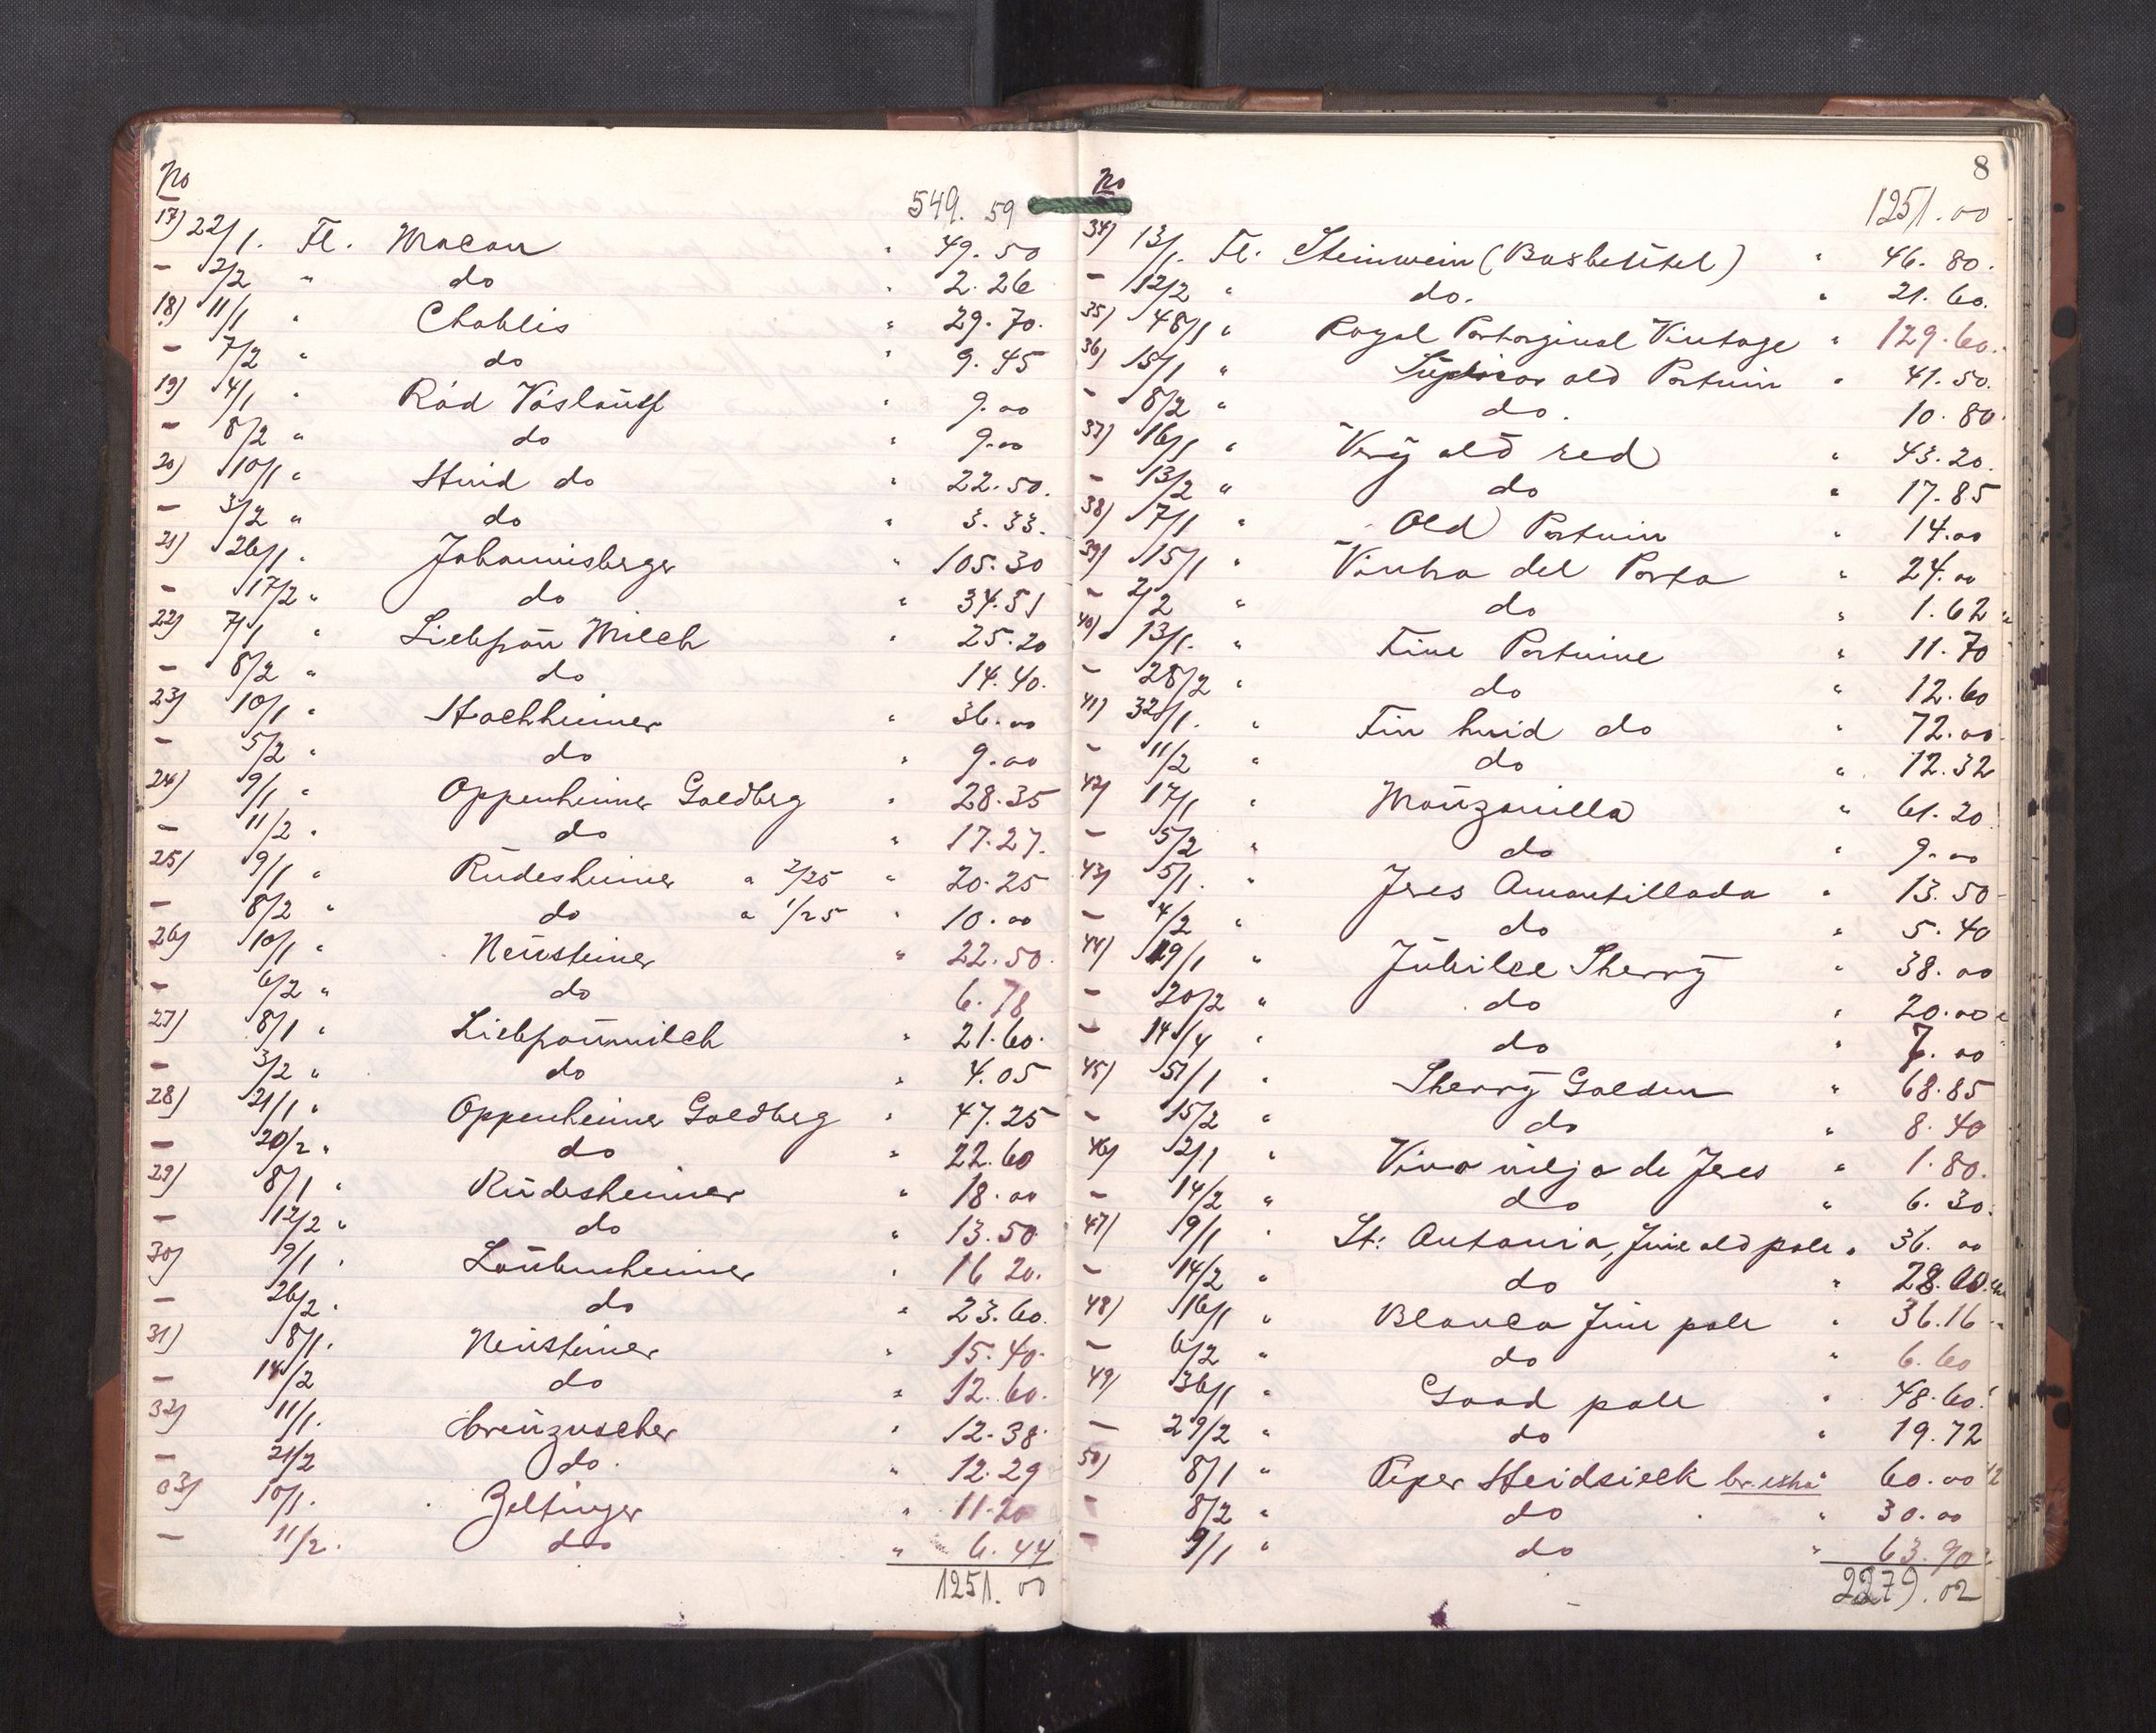 No
549. 59
17) 22/1. Fl. Macon " 49.50
– 2/2 " do " 2.26
18) 11/1 " Chablis " 29.70.
– 7/2 " do " 9.45
19) 4/1 " Röd Vöslauer " 9.00
– 8/2 " do " 9.00
20) 10/1 " Hvid do " 22.50.
– 3/2 " do " 3.33.
21) 26/1 " Johannisberger " 105.30
– 17/2 " do " 34.51
22) 7/1 " Liebfrau Milch " 25.20
– 8/2 " do 14.40.
23) 10/1 " Hochheimer " 36.00
– 5/2 " do " 9.00
24) 9/1 " Oppenheimer Goldberg " 28.35
– 11/2 " do " 17.27.
25) 9/1 " Rüdesheimer a 2/25 " 20.25
– 8/2 " do a 1/25 " 10.00
26) 10/1 " Neirsteiner " 22.50.
– 6/2 " do 6.78
27) 8/1 " Liebfraumilch " 21.60.
– 3/2 " do " 4.05
28) 21/1 " Oppenheimer Goldberg " 47.25
– 20/2 " do " 22.60
29) 8/1 " Rüdesheimer " 18.00
– 12/2 " do " 13.50
30) 9/1 " Laubenheimer " 16 20.
– 26/2 " do " 23.60.
31) 8/1. Neirsteiner " 15.40.
– 14/2 do " 12.60.
32) 11/1. Creuznacher " 12.38.
– 21/2 do. " 12.29
33) 10/1. Zeltinger " 11.20
– 11/2. do " 6.44
1251. 00
8
No
1251.00
34) 13/1. Fl. Steinwein (Boxbeütel) " 46.80.
– 12/2 " do. " 21.60.
35) 48/1 " Royal Portorginal Vintage " 129.60.
36) 15/1 " Superior old Portvin " 41.50.
– 8/2 " do. 10.80.
37) 16/1 " Very old red " 43.20.
– 13/2 " do " 17.85
38) 7/1 " Old Portvin " 14.00
39) 15/1 " Vinho del Porto " 24.00
– 2/2 " do " 1.62
40) 13/1. " Fine Portvine " 11.70
– 28/2 " do " 12.60
41) 32/1. " Fin hvid do " 72.00
– 11/2 " do " 12.32
42) 17/1 " Manzanilla " 61.20
– 5/2 " do " 9.00
43) 5/1. " Jeres Amontillado " 13.50
– 4/2 " do " 5.40
44) 19/1 " Jubilee Sherry " 38.00
– 20/2 " do " 20.00
– 14/4 " do " 7.00
45) 51/1 " Sherry Golden " 68.85
– 15/2 " do " 8.40
46) 2/1 " Vino viejo de Jeres " 1.80.
– 14/2 " do " 6.30.
47) 9/1 " St: Antonio, fine old pale " 36.00
– 14/2 " do " 28.00
48) 16/1 " Blanco fine pale " 36.16
– 6/2 " do " 6.60
49) 36/1 " Good pale " 48.60
– 29/2 " do " 19.72
50) 8/1 " Piper Heidsieck br. extra 60.00
– 8/2 " do " 30.00
– 9/1 " do " 63.90
2279.02